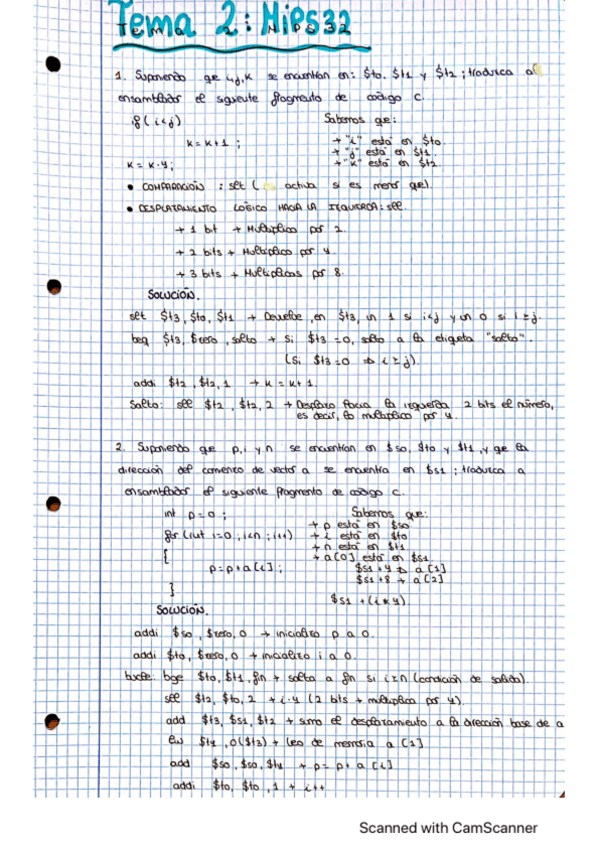 Tema 2: Mips32
1. Suponiendo que i,j,k se encuentran en: $t0, $t1 y $t2; traduzca a
ensamblador el siguiente fragmento de código C.
if (i<j) Sabemos que:
k = k+1; → "i" está en $t0.
→ "j" está en $t1.
→ "k" está en $t2.
k = k·4;
• COMPARACIÓN : slt ( activa si es menor que).
• DESPLAZAMIENTO LÓGICO HACIA LA IZQUIERDA: sll.
→ 1 bit → Multiplico por 2.
→ 2 bits → Multiplico por 4.
→ 3 bits → Multiplicas por 8.
SOLUCIÓN.
slt $t3, $t0, $t1 → Devuelve, en $t3, un 1 si i<j y un 0 si i ≥ j.
beq $t3, $zero, salto → Si $t3 = 0, salto a la etiqueta "salto".
(si $t3=0 ⇒ i ≥ j).
addi $t2, $t2, 1 → k = k+1.
Salto: sll $t2, $t2, 2 → Desplazo hacia la izquierda 2 bits el número,
es decir, lo multiplico por 4.
2. Suponiendo que p, i y n se encuentran en $s0, $t0 y $t1, y que la
dirección del comienzo de vector a se encuentra en $s1; traduzca a
ensamblador el siguiente fragmento de código C.
int p=0; Sabemos que:
→ p está en $s0
for (int i=0; i<n; i++) → i está en $t0
→ n está en $t1
{ → a[0] está en $s1
p = p+a[i]; $s1+4 → a[1]
$s1+8 → a[2]
}
$s1 + (i*4).
SOLUCIÓN.
addi $s0, $zero, 0 → inicializo p a 0.
addi $t0, $zero, 0 → inicializo i a 0.
bucle: bge $t0, $t1, fin → salta a fin si i≥n (condición de salida).
sll $t2, $t0, 2 → i·4 (2 bits → multiplico por 4).
add $t3, $s1, $t2 → sumo el desplazamiento a la dirección base de a
lw $t4, 0($t3) → leo de memoria a [i]
add $s0, $s0, $t4 → p = p+ a [i]
addi $t0, $t0, 1 → i++
Scanned with CamScanner